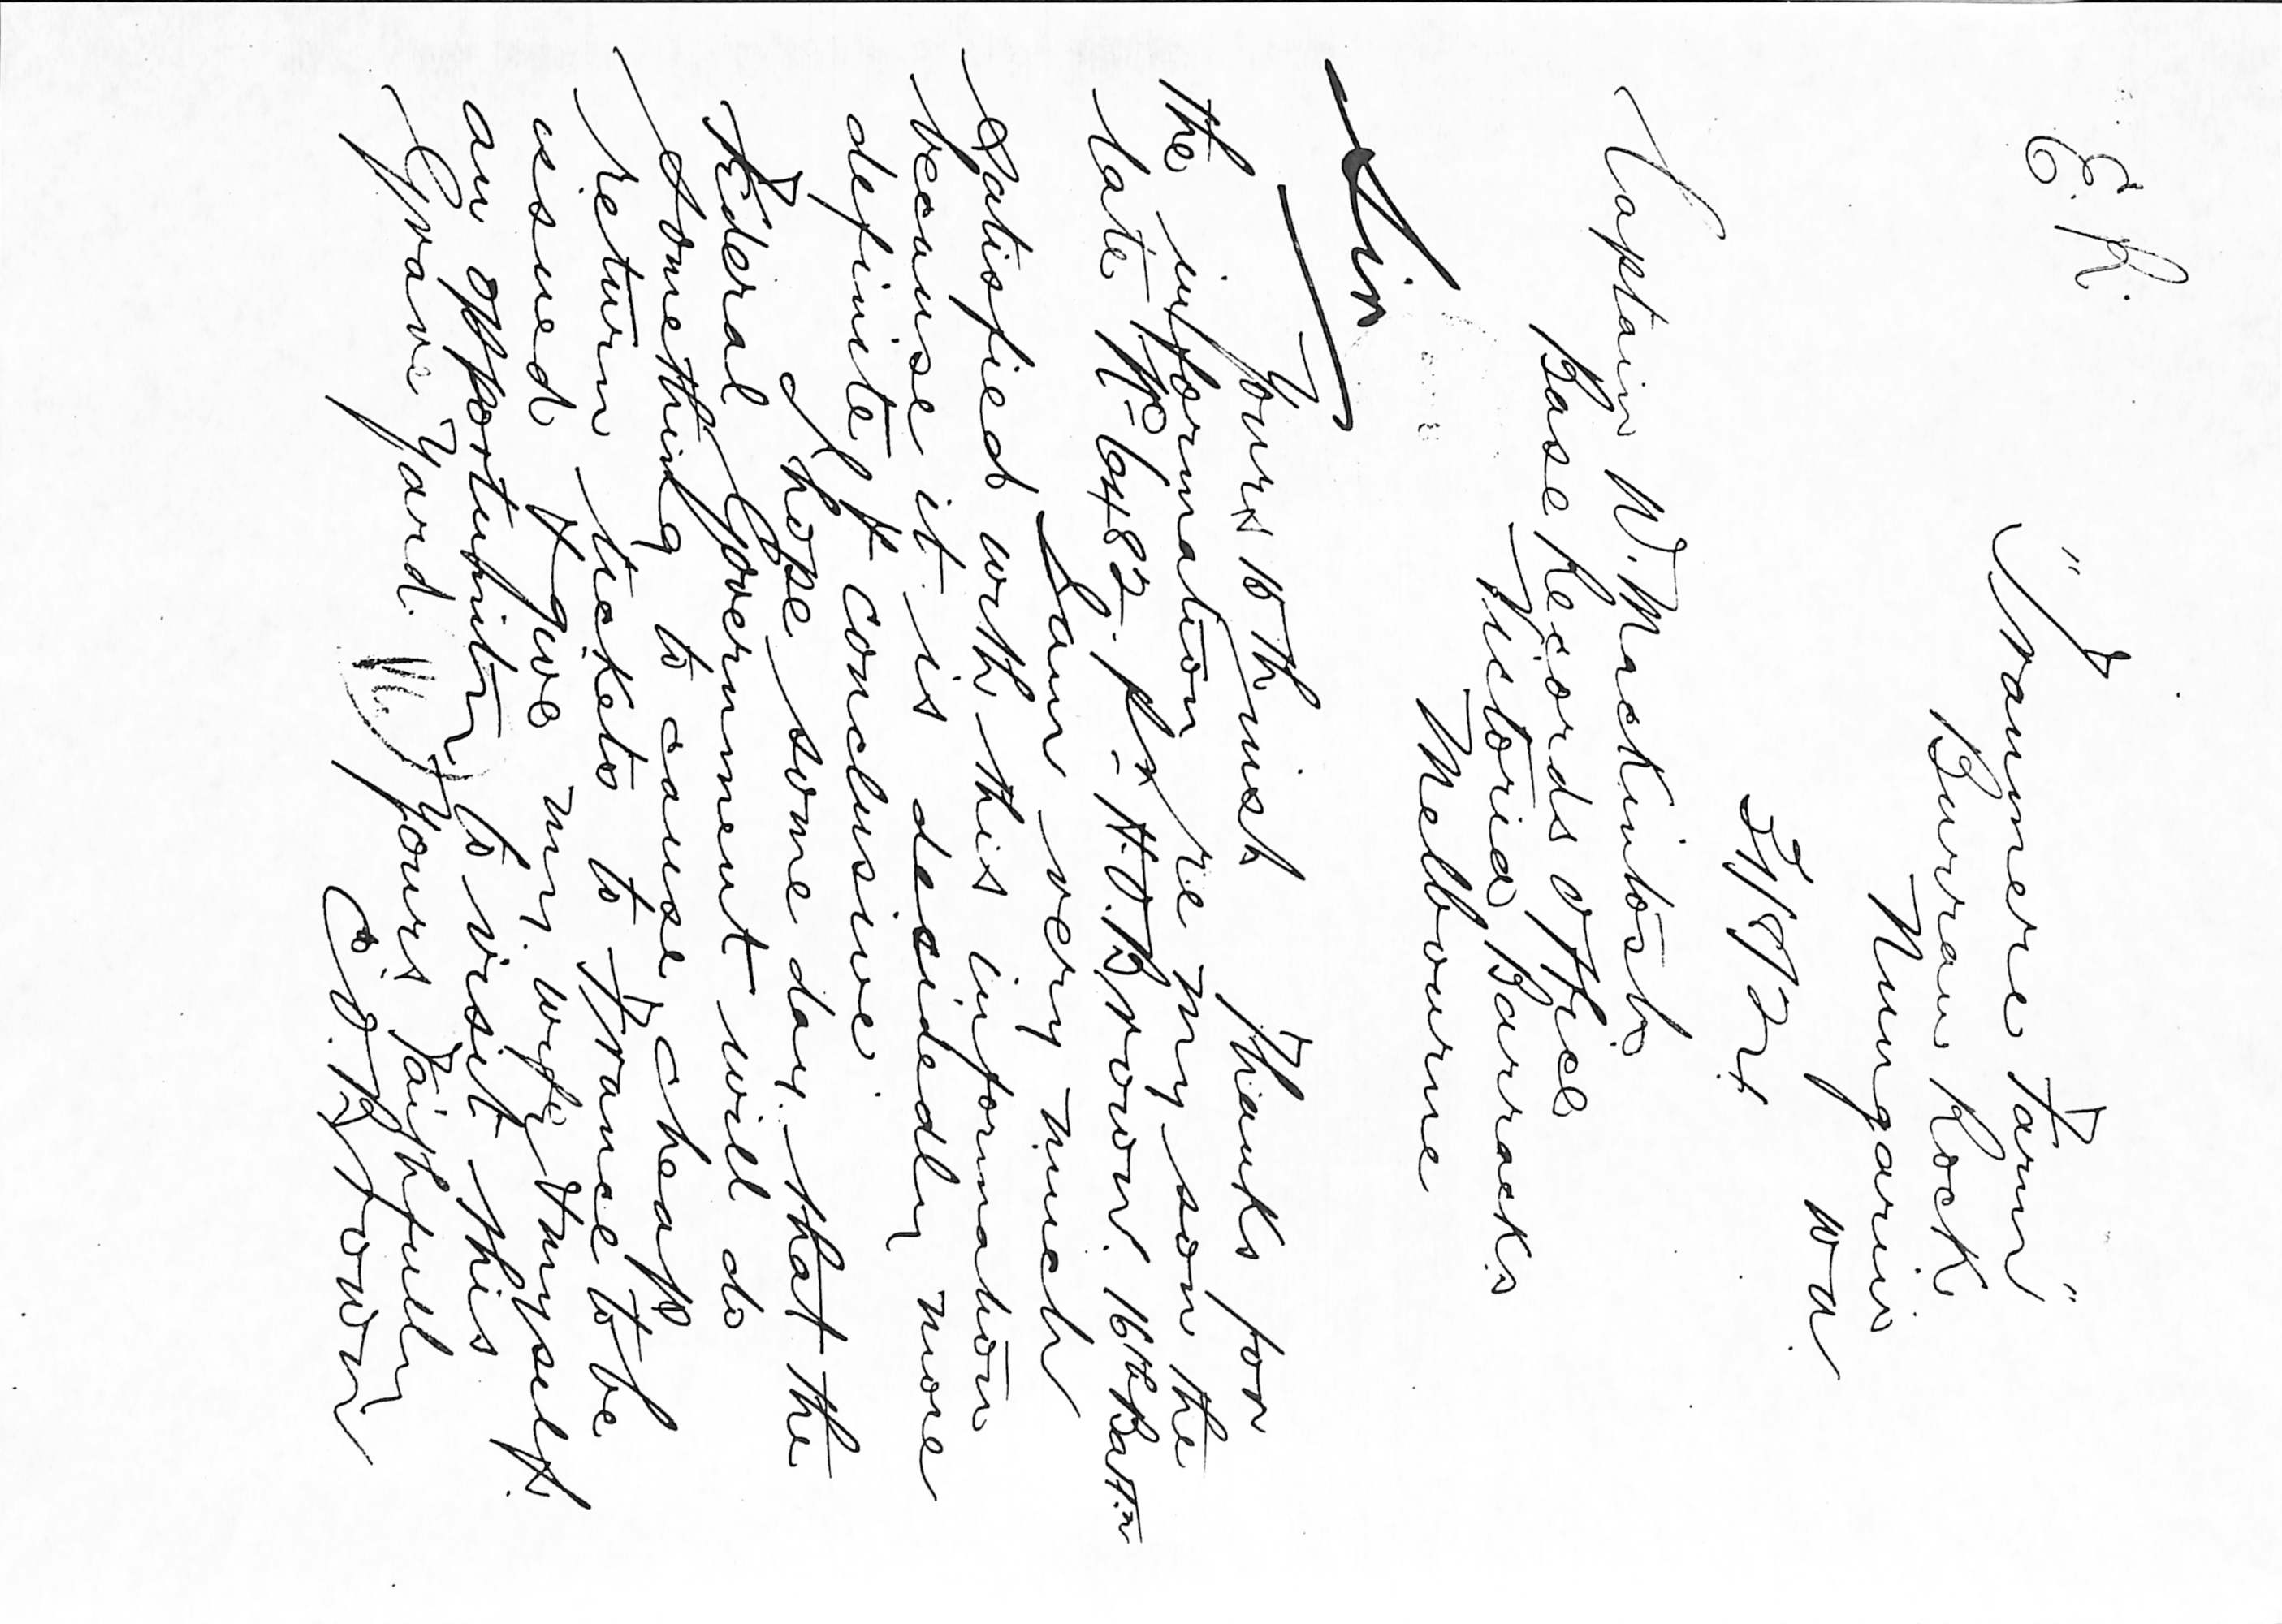 E. R.
"Tranmere Farm"
Burran Rock
Nungarin
W A
Captain W. MacKintosh
Base Records Office
Victoria Barracks
Melbourne
Sir
Yours 15th inst Thanks for
the information re my son the
late No 6482. Pte H.O. Brown. 16th Battn
I am very much
satisfied with this information
because it is decidedly more
definite & conclusive
I hope some day that the
Federal Government will do
something to cause cheap
return tickets to France to be
issued & give my wife & myself
an opportunity to visit this
Grave Yard.
Yours Faithfully
Brown